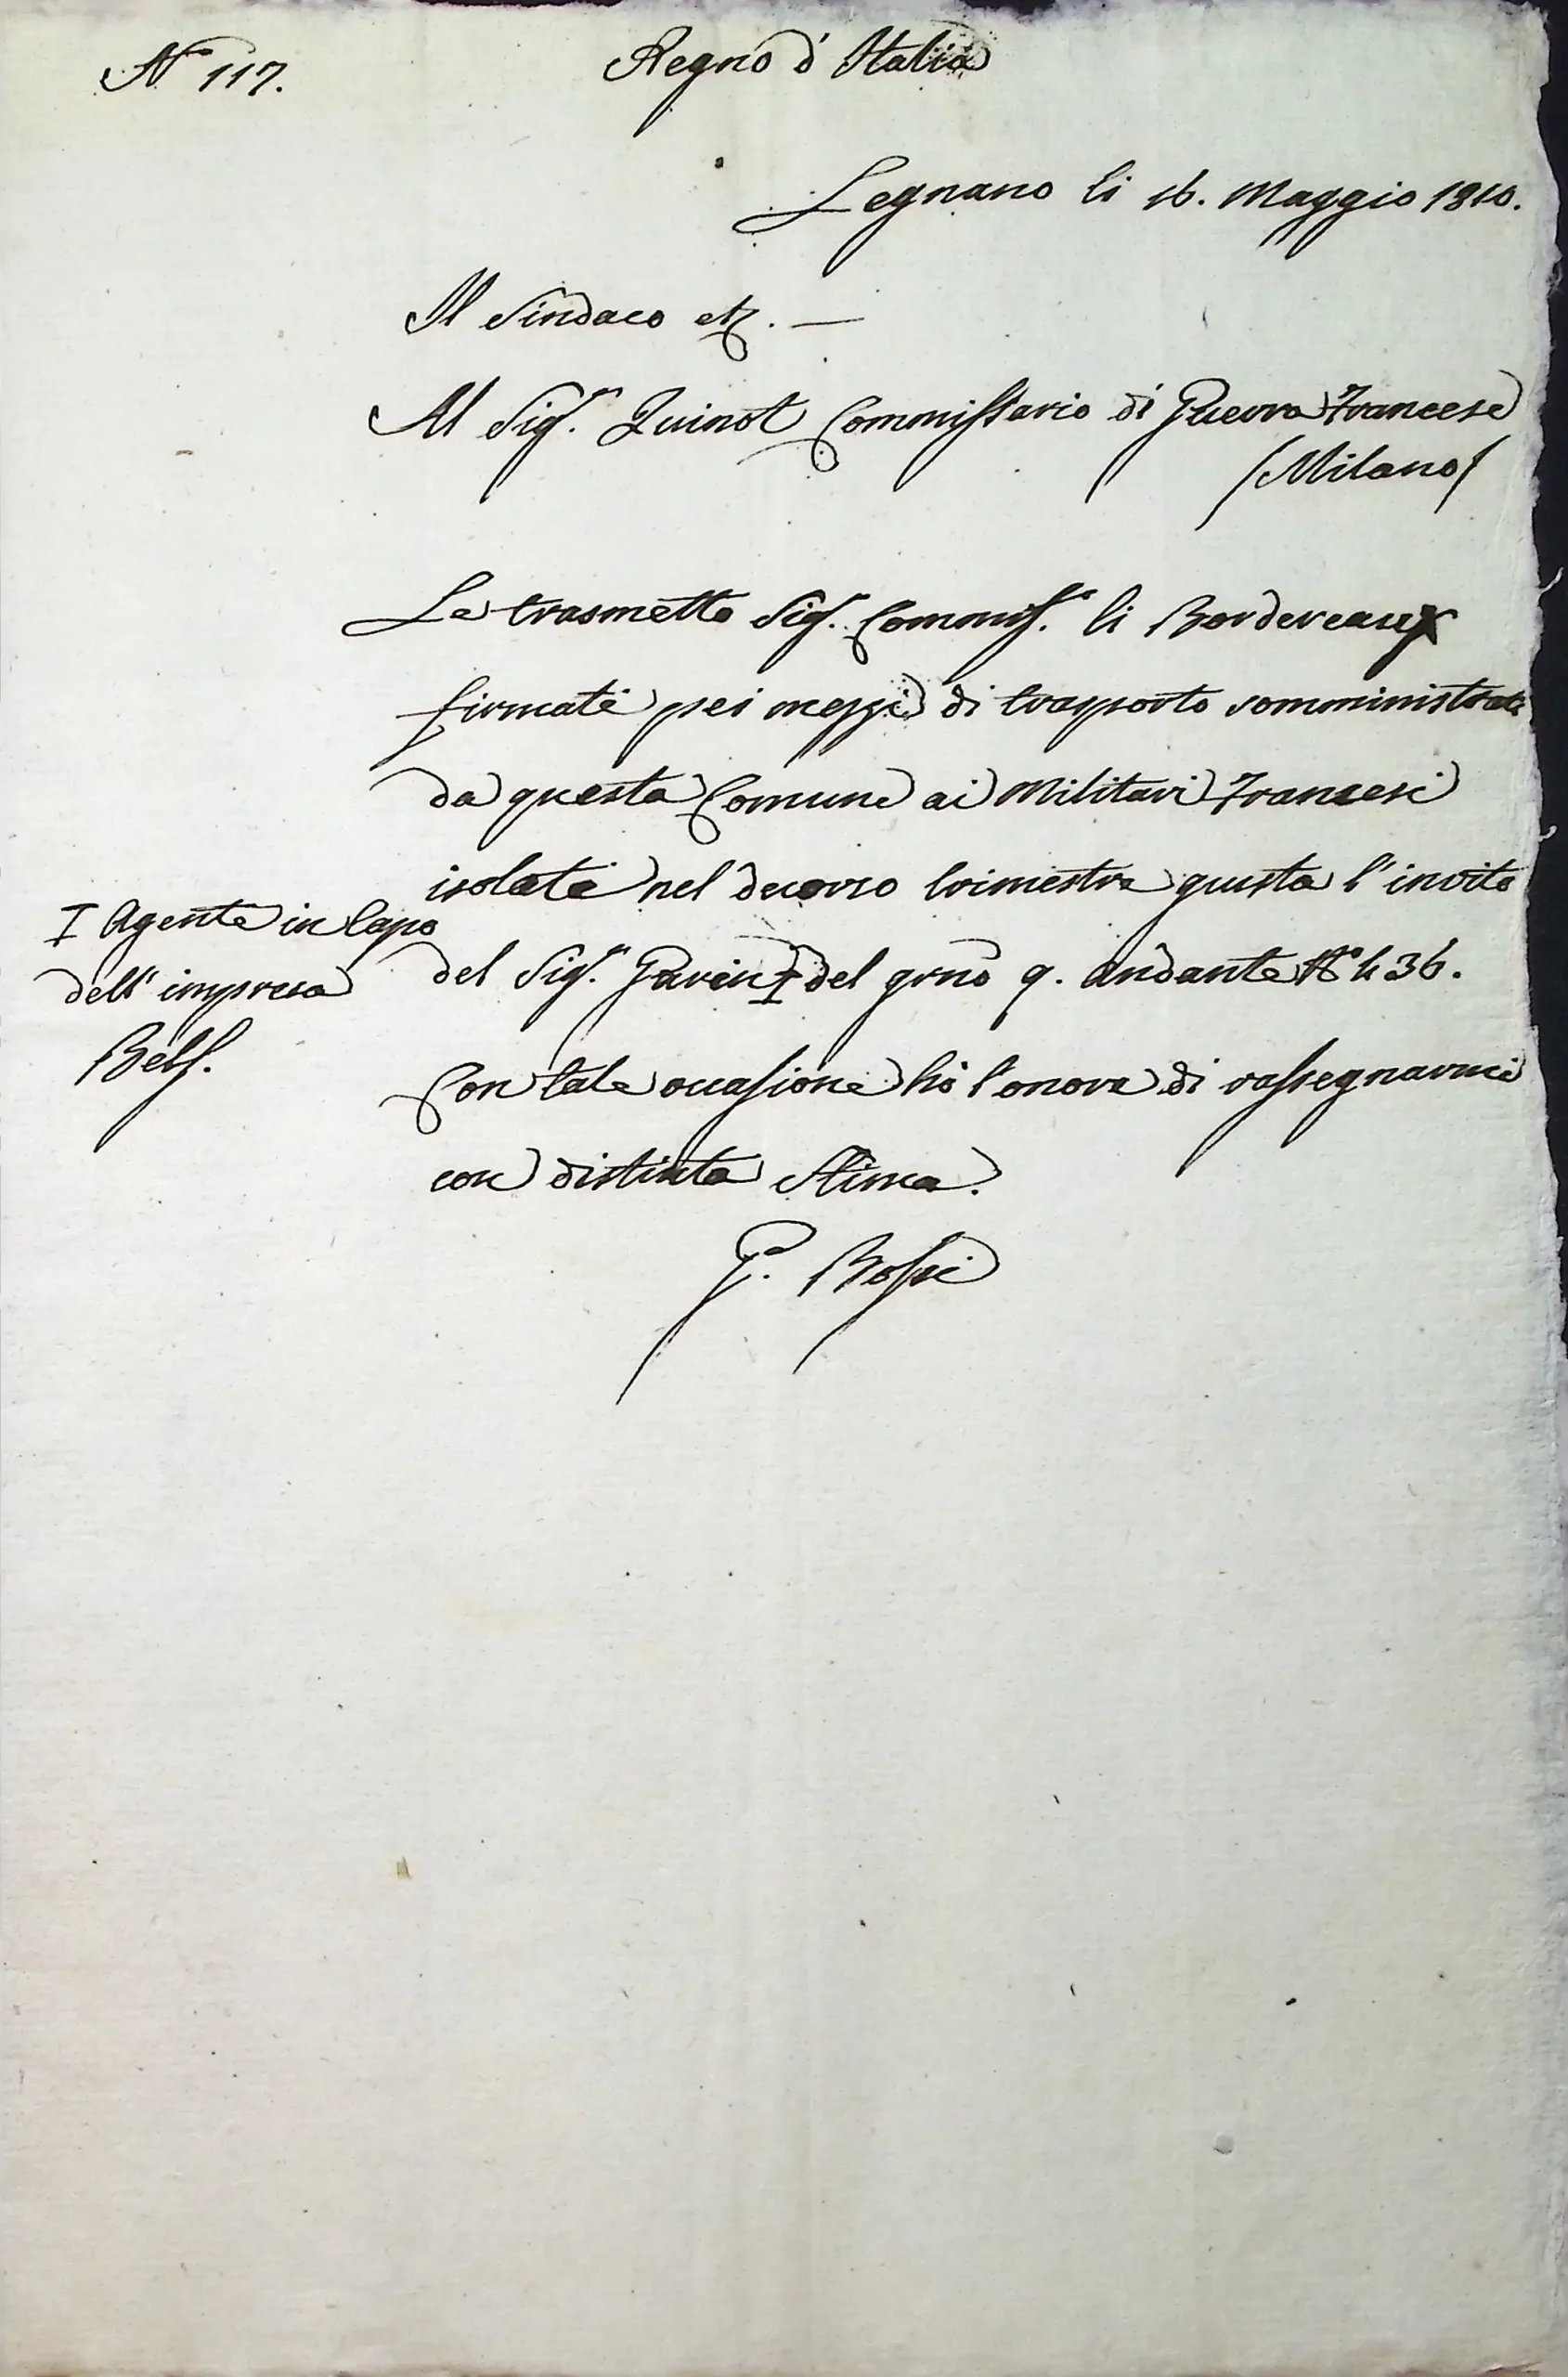 N.° 117.
Regno d'Italia
Legnano li 16. Maggio 1810.
Il Sindaco etz. —
Al Sig.r Quinot Commissario di Guerra Francese
/Milano/
Le trasmetto Sig.r Commiss.o li Bordereaux
firmati pei mezzi di trasporto somministrati
da questa Comune ai Militari Francesi
isolati nel decorso trimestre giusta l'invito
del Sig.r Pavin I del grno 9. andante N.° 436.
Con tale occasione hò l'onore di rassegnarmi
con distinta stima.
G. Bossi
I Agente in Capo
dell'impresa